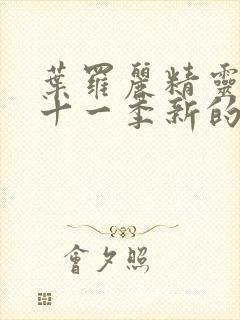 葉羅麗精靈
十一季新的
會夕照